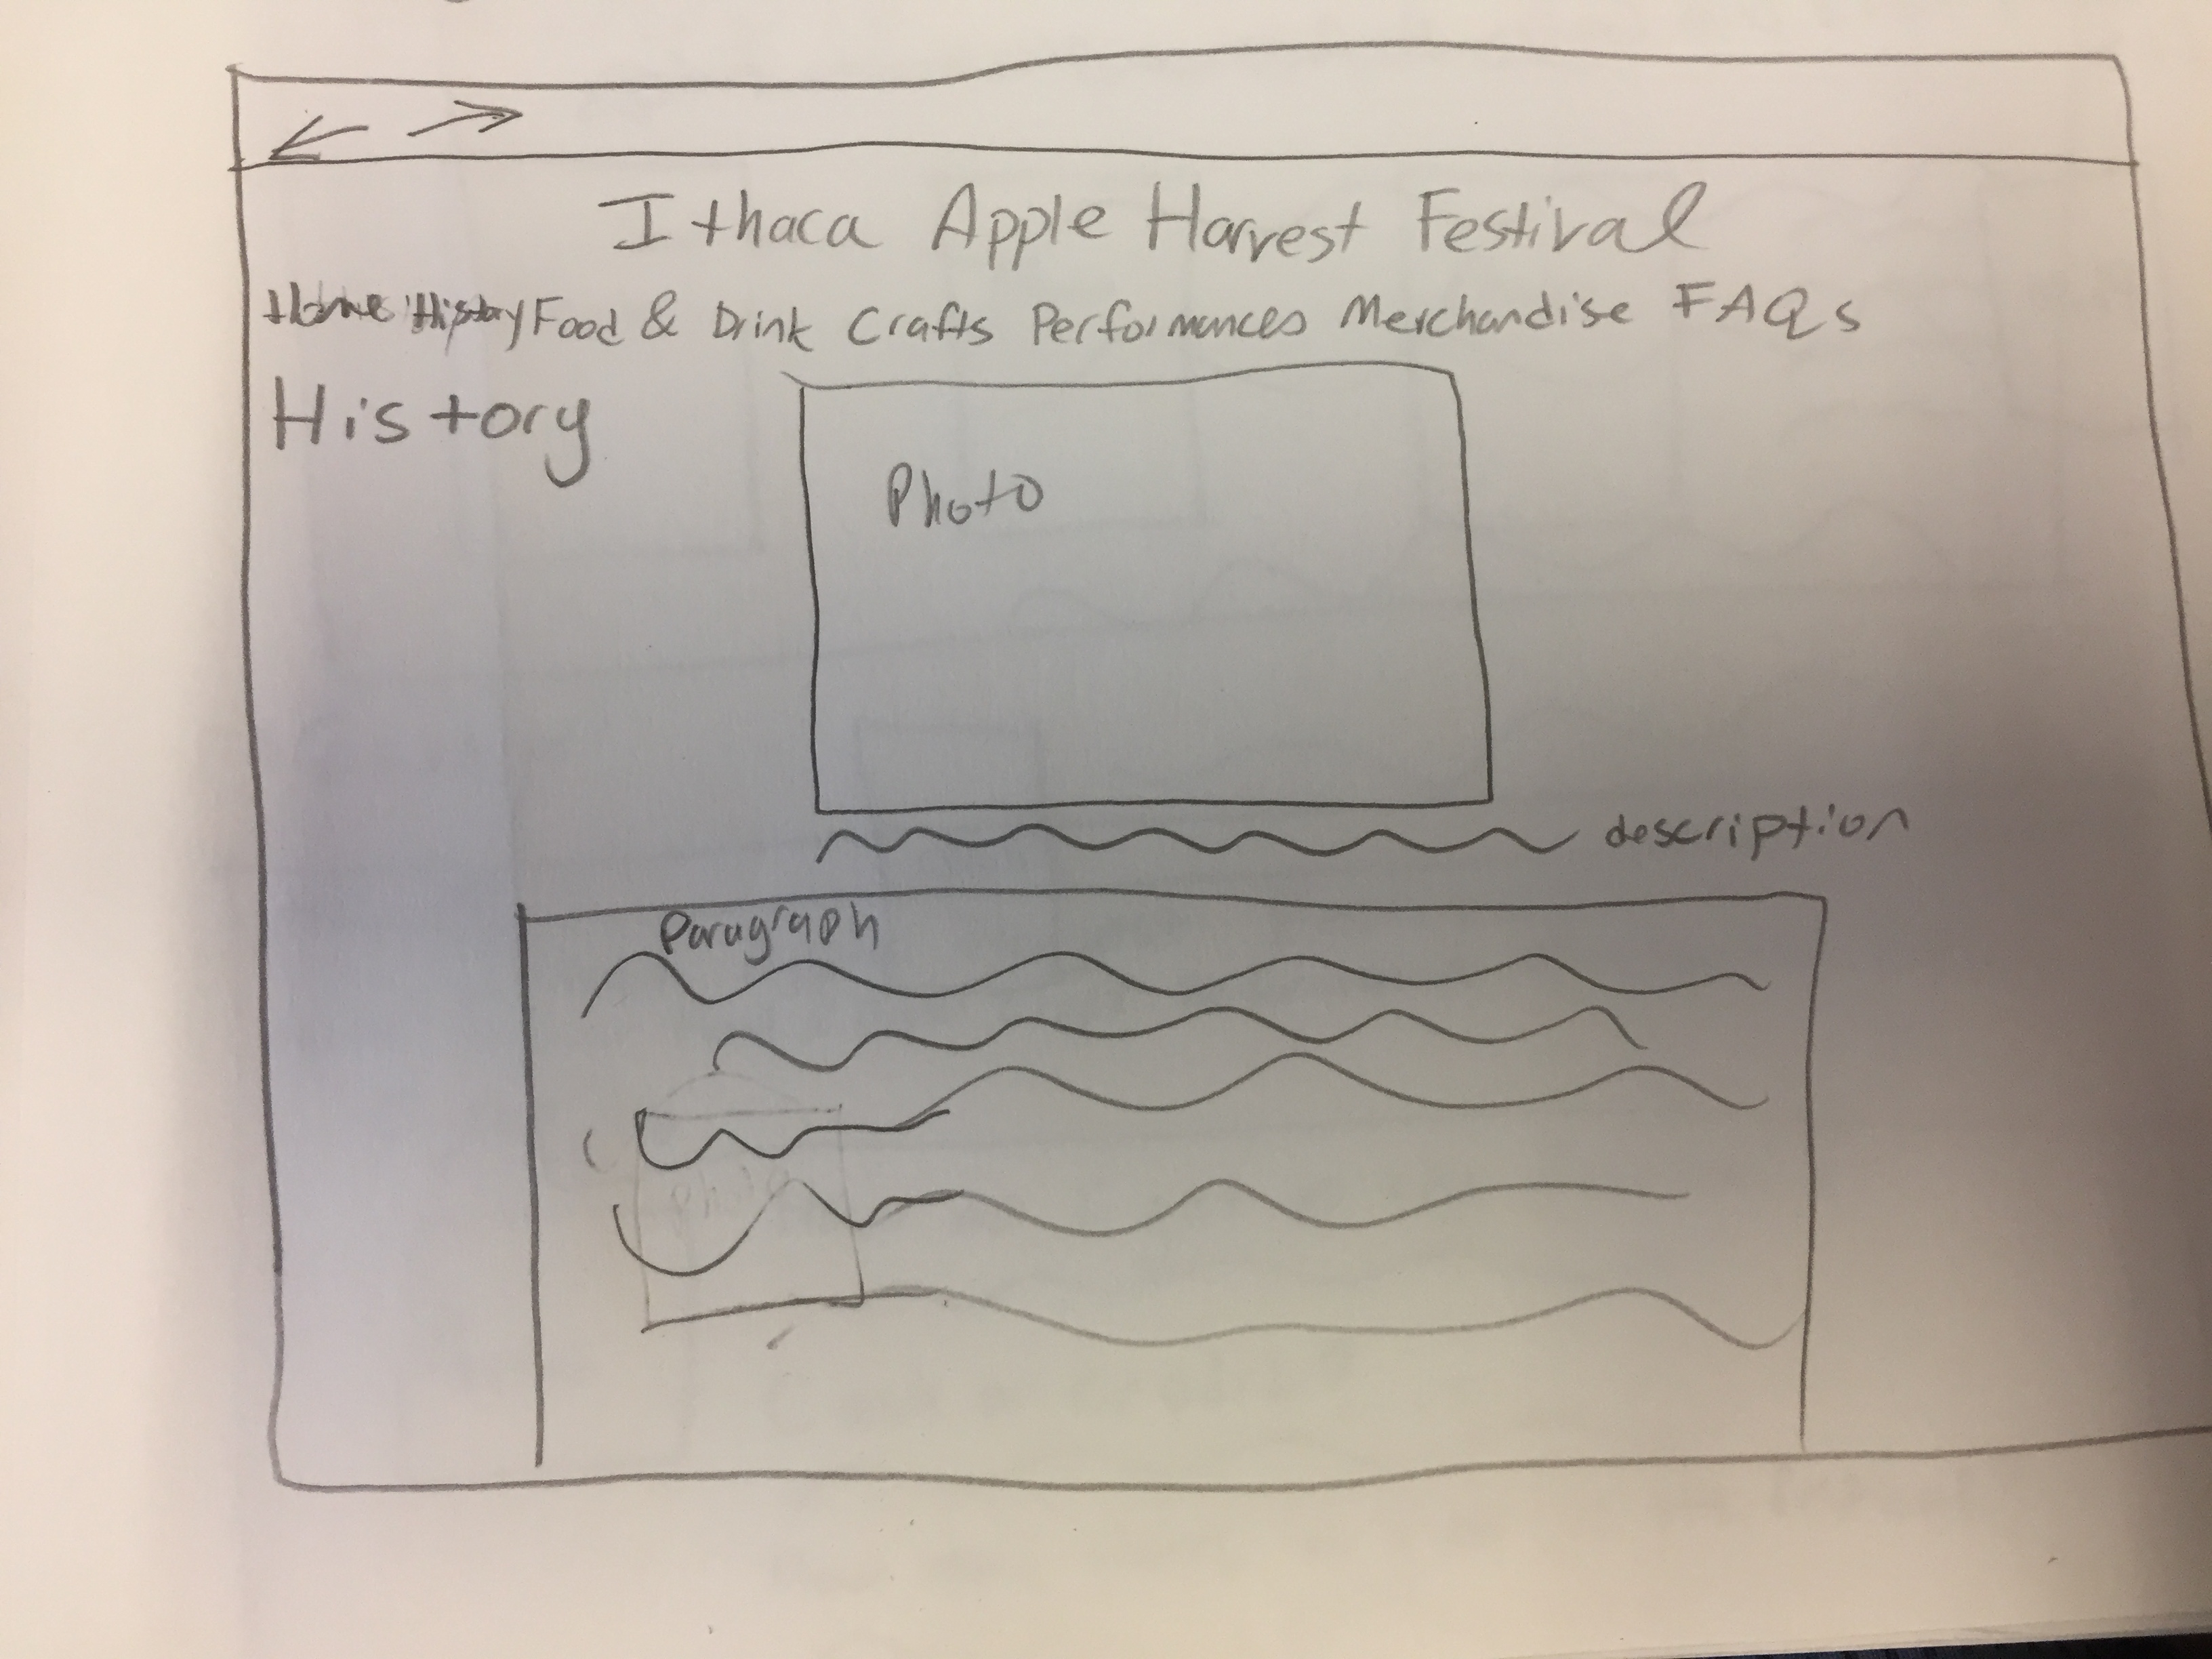 Ithaca Apple Harvest Festival
Home History Food & Drink Crafts Performances Merchandise FAQs
History
Photo
description
Paragraph